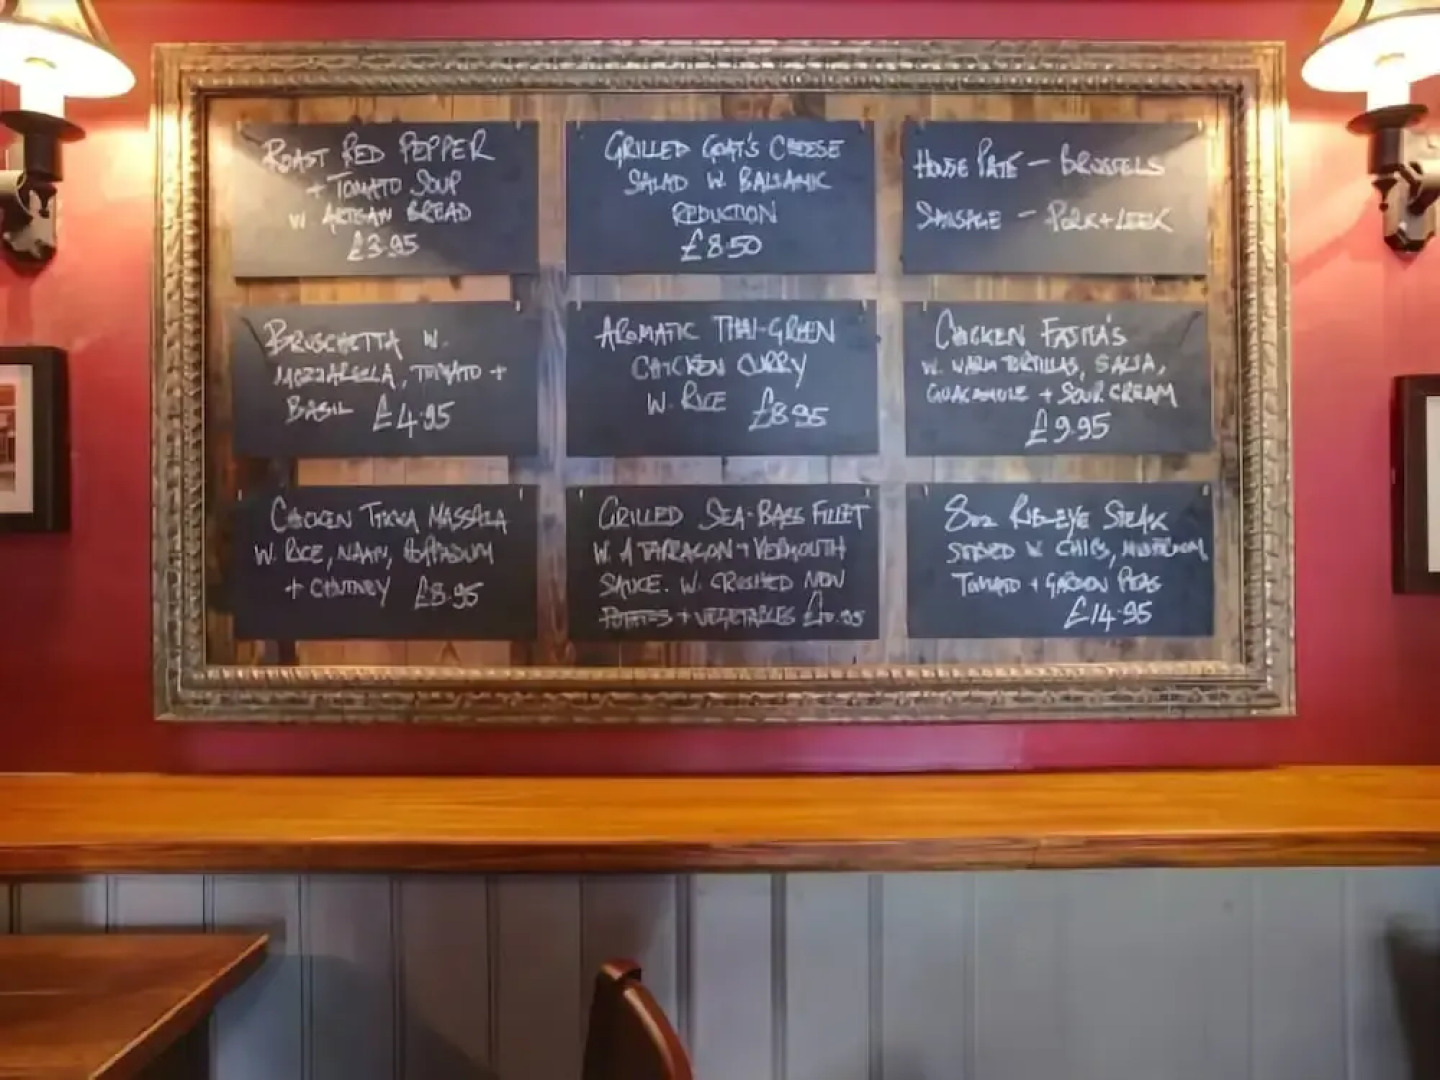 ROAST RED PEPPER
+ TOMATO SOUP
W. ARTISAN BREAD
£3.95
GRILLED GOAT'S CHEESE
SALAD W. BALSAMIC
REDUCTION
£8.50
HOUSE PATE – BRUSSELS
SAUSAGE – PORK + LEEK
BRUSCHETTA W.
MOZZARELLA, TOMATO +
BASIL £4.95
AROMATIC THAI-GREEN
CHICKEN CURRY
W. RICE £8.95
CHICKEN FAJITA'S
W. WARM TORTILLAS, SALSA,
GUACAMOLE + SOUR CREAM
£9.95
CHICKEN TIKKA MASSALA
W. RICE, NAAN, POPPADUM
+ CHUTNEY £8.95
GRILLED SEA-BASS FILLET
W. A TARRAGON + VERMOUTH
SAUCE. W. CRUSHED NEW
POTATOES + VEGETABLES £10.95
8oz RIB-EYE STEAK
SERVED W. CHIPS, MUSHROOM,
TOMATO + GARDEN PEAS
£14.95